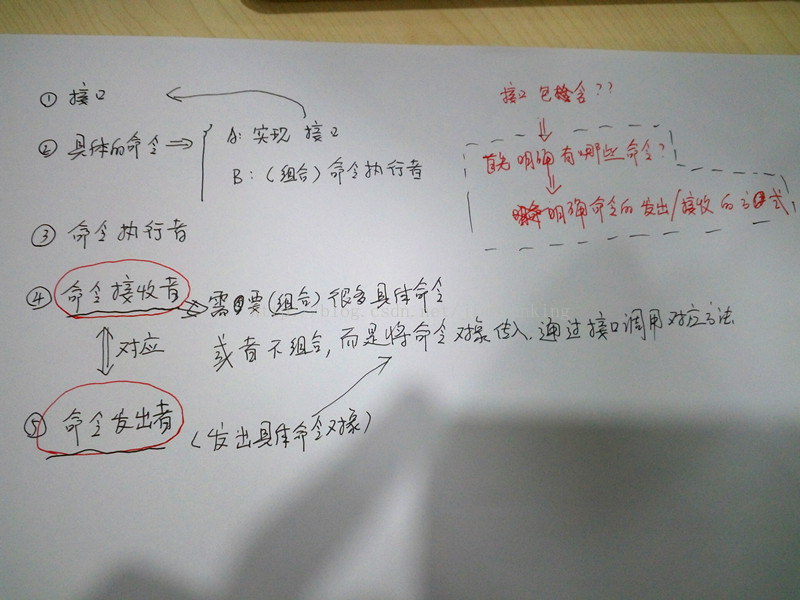 ① 接口
② 具体的命令 ⇒ { A: 实现 接口
B: (组合) 命令执行者
③ 命令执行者
④ 命令接收者 ⇒ 需要(组合)很多具体命令
或者不组合, 而是将命令对象传入. 通过接口调用对应方法
⇕ 对应
⑤ 命令发出者 (发出具体命令对象)
接口 包含??
⇓
首先 明确有哪些命令?
⇓
明确命令的发出/接收的方式